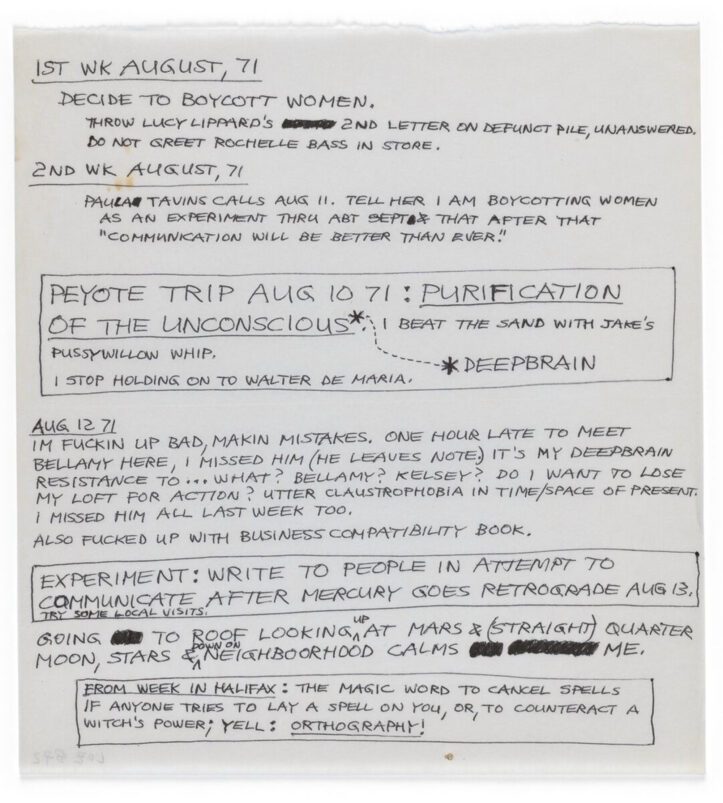 1ST WK AUGUST, 71
DECIDE TO BOYCOTT WOMEN.
THROW LUCY LIPPARD'S 2ND LETTER ON DEFUNCT PILE, UNANSWERED.
DO NOT GREET ROCHELLE BASS IN STORE.
2ND WK AUGUST, 71
PAULA TAVINS CALLS AUG 11. TELL HER I AM BOYCOTTING WOMEN
AS AN EXPERIMENT THRU ABT SEPT & THAT AFTER THAT
"COMMUNICATION WILL BE BETTER THAN EVER."
PEYOTE TRIP AUG 10 71 : PURIFICATION
OF THE UNCONSCIOUS*. I BEAT THE SAND WITH JAKE'S
PUSSYWILLOW WHIP.
* DEEPBRAIN
I STOP HOLDING ON TO WALTER DE MARIA.
AUG 12 71
IM FUCKIN UP BAD, MAKIN MISTAKES. ONE HOUR LATE TO MEET
BELLAMY HERE, I MISSED HIM (HE LEAVES NOTE.) IT'S MY DEEPBRAIN
RESISTANCE TO ... WHAT? BELLAMY? KELSEY? DO I WANT TO LOSE
MY LOFT FOR ACTION? UTTER CLAUSTROPHOBIA IN TIME/SPACE OF PRESENT.
I MISSED HIM ALL LAST WEEK TOO.
ALSO FUCKED UP WITH BUSINESS COMPATIBILITY BOOK.
EXPERIMENT: WRITE TO PEOPLE IN ATTEMPT TO
COMMUNICATE AFTER MERCURY GOES RETROGRADE AUG 13.
TRY SOME LOCAL VISITS.
GOING TO ROOF LOOKING UP AT MARS & (STRAIGHT) QUARTER
MOON, STARS & DOWN ON NEIGHBOORHOOD CALMS ME.
FROM WEEK IN HALIFAX : THE MAGIC WORD TO CANCEL SPELLS
IF ANYONE TRIES TO LAY A SPELL ON YOU, OR, TO COUNTERACT A
WITCH'S POWER; YELL: ORTHOGRAPHY!